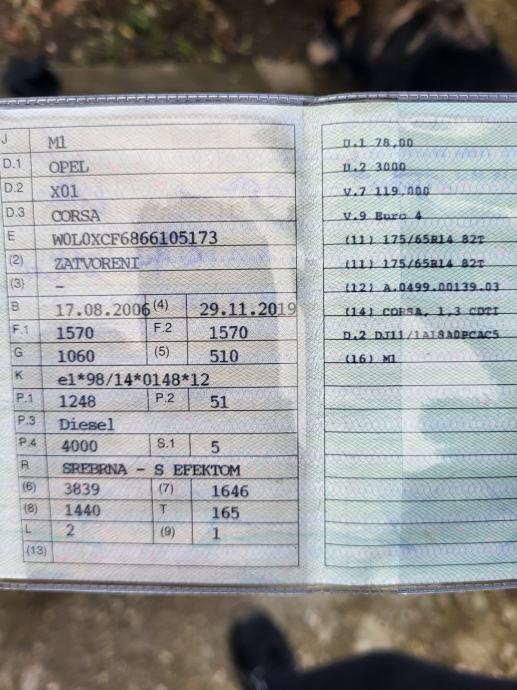 J M1
D.1 OPEL
D.2 X01
D.3 CORSA
E W0L0XCF6866105173
(2) ZATVORENI
(3) –
B 17.08.2006 (4) 29.11.2019
F.1 1570 F.2 1570
G 1060 (5) 510
K e1*98/14*0148*12
P.1 1248 P.2 51
P.3 Diesel
P.4 4000 S.1 5
R SREBRNA - S EFEKTOM
(6) 3839 (7) 1646
(8) 1440 T 165
L 2 (9) 1
(13)
U.1 78,00
U.2 3000
V.7 119,000
V.9 Euro 4
(11) 175/65R14 82T
(11) 175/65R14 82T
(12) A.0499.00139.03
(14) CORSA, 1,3 CDTI
D.2
(16) M1